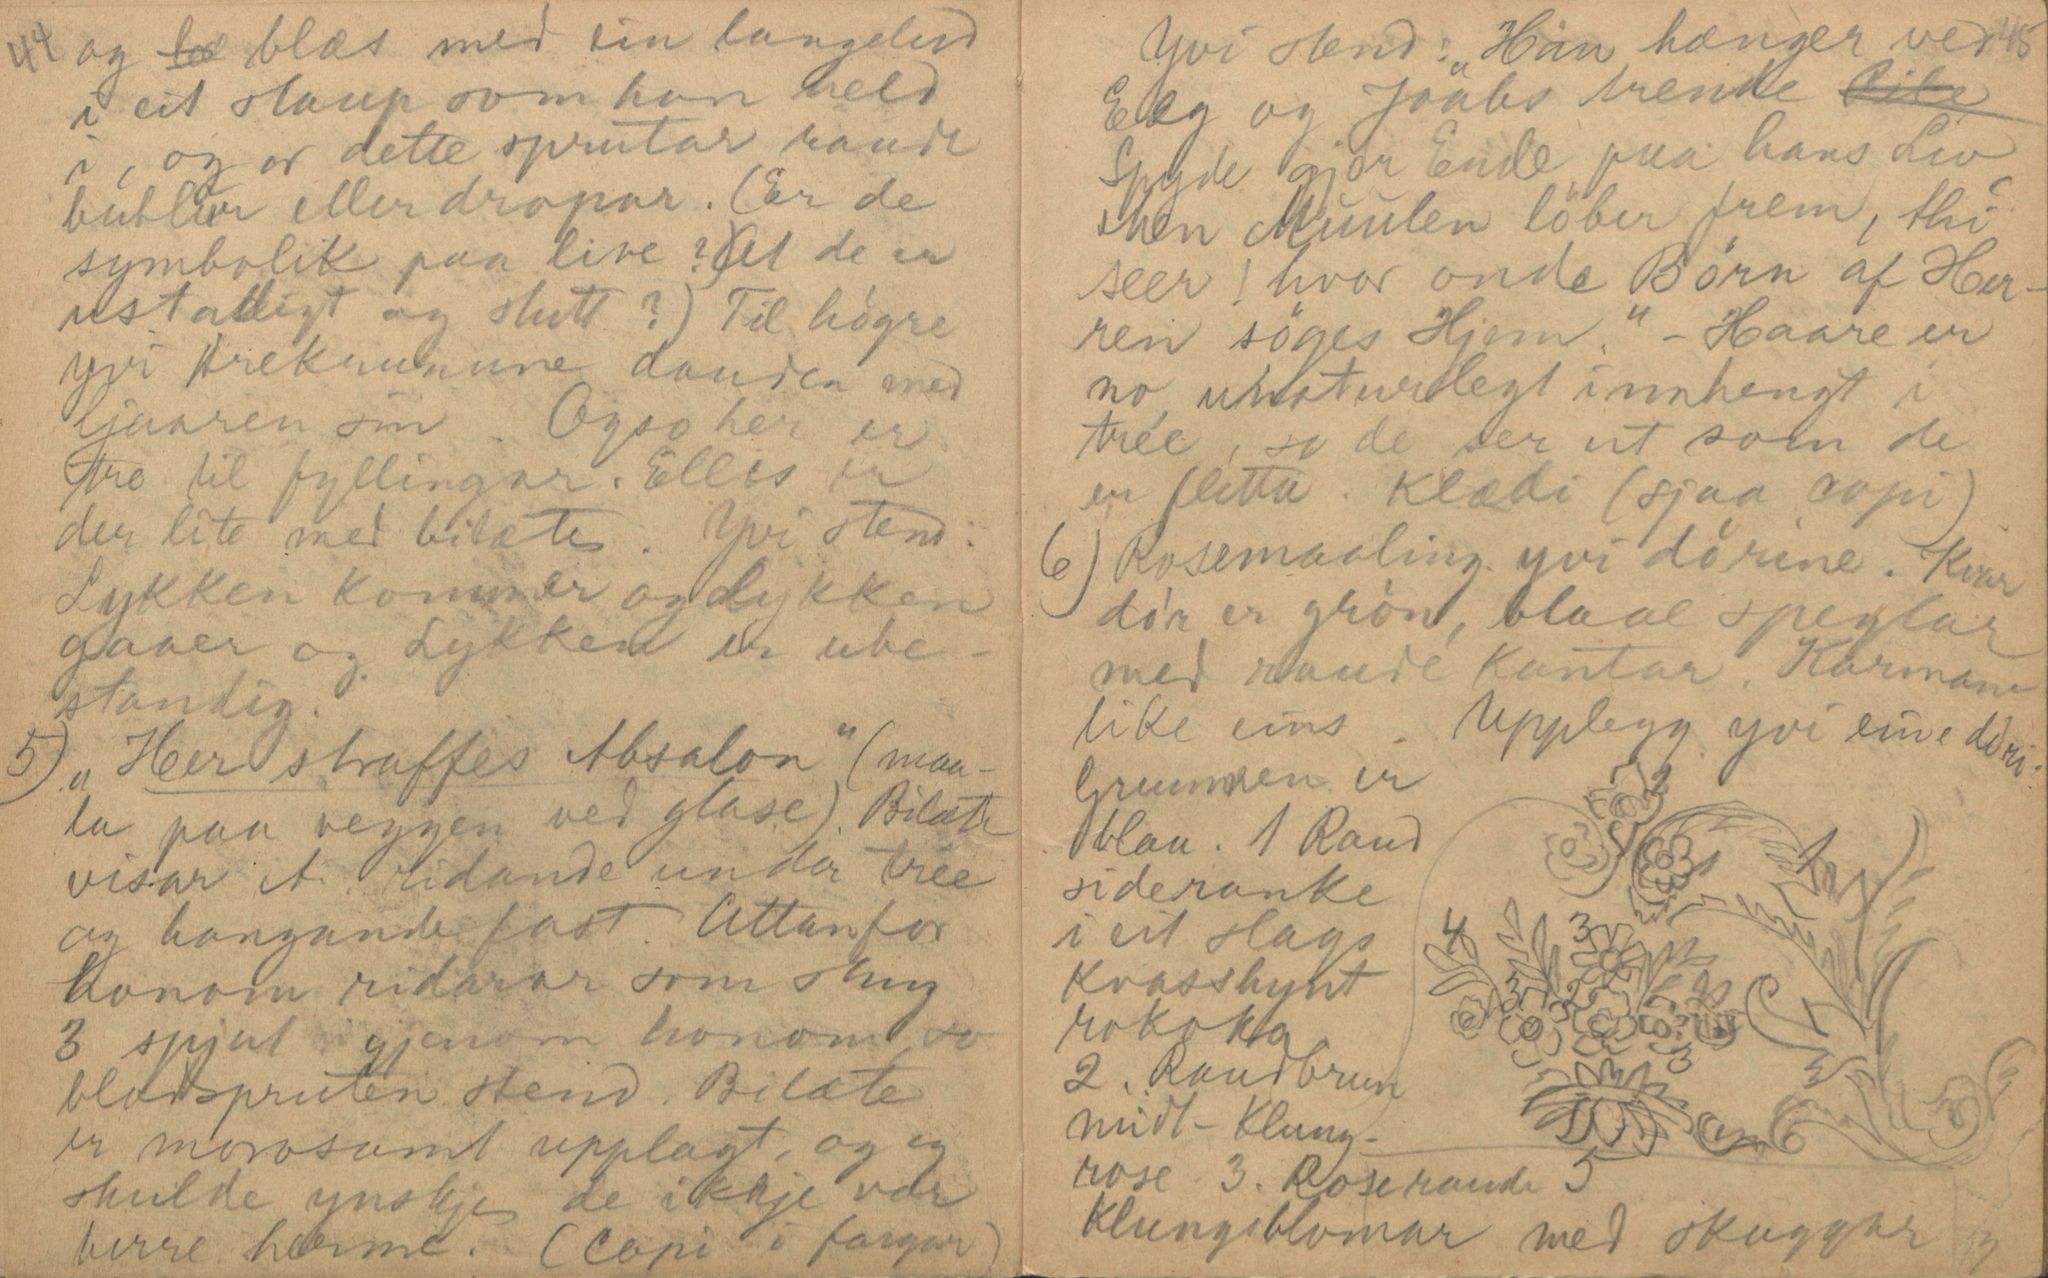 44
og blæs med ein
i eit staup som han held
i, og or dette sprutar raude
bublur eller dropar. (Er de
symbolik paa live? At de er
ustattigt og slutt?) Til högre
yvi trekrunune dauden med
ljaaren sin. Ogso her er
tre til fyllingar. Elles er
der lite med bilæte. Yvi stend:
Lykken kommer og Lykken
gaaer og Lykken er ube-
standig.
5) „Her straffes Absalon" (maa-
la paa veggen ved glase). Bilæte
visar A. ridande under trée
og hangande fast. Attanfor
honom ridarar som sting
3 spjut igjenom honom, so
blodspruten stend. Bilæte
er morosamt upplagt, og eg
skulde ynskje de ikkje var
berre herme. (Copi i fargar)
45
Yvi stend: „Han hænger ved
Eeg og Joabs trende Pile
Spyde gjör Ende paa hans Liv,
men Muulen löber frem, thi
seer! hvor onde Börn af Her-
ren söges Hjem." - Haare er
no unaturlegt innhengt i
trée, so de ser ut som de
er fletta. Klædi (sjaa copi)
6) Rosemaaling yvi dörine. Kvar
dör er grön, blaae speglar
med raude kantar. Karmane
like eins. Upplegg yvi eine döri:
Grunnen er
blaa. 1 Raud
sideranke
i eit slags
kvasshynt
rokoko
2. Raudbrun
midt-Klung-
rose 3. Roseraude 5
Klungeblomar med skuggar
2
1
1
4
3
3
2
3
3
5